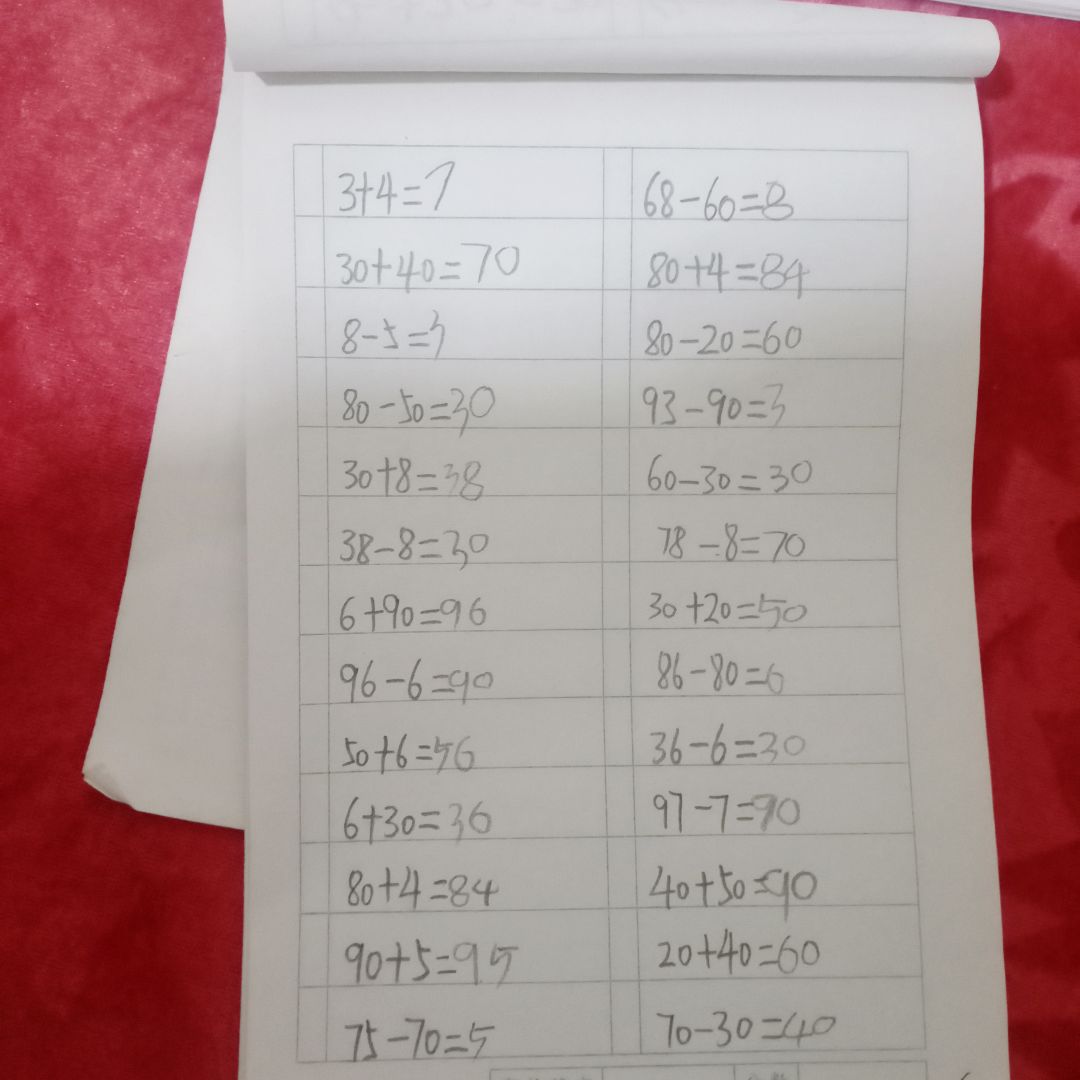 3+4=7
30+40=70
8-5=3
80-50=30
30+8=38
38-8=30
6+90=96
96-6=90
50+6=56
6+30=36
80+4=84
90+5=95
75-70=5
68-60=8
80+4=84
80-20=60
93-90=3
60-30=30
78-8=70
30+20=50
86-80=6
36-6=30
97-7=90
40+50=90
20+40=60
70-30=40